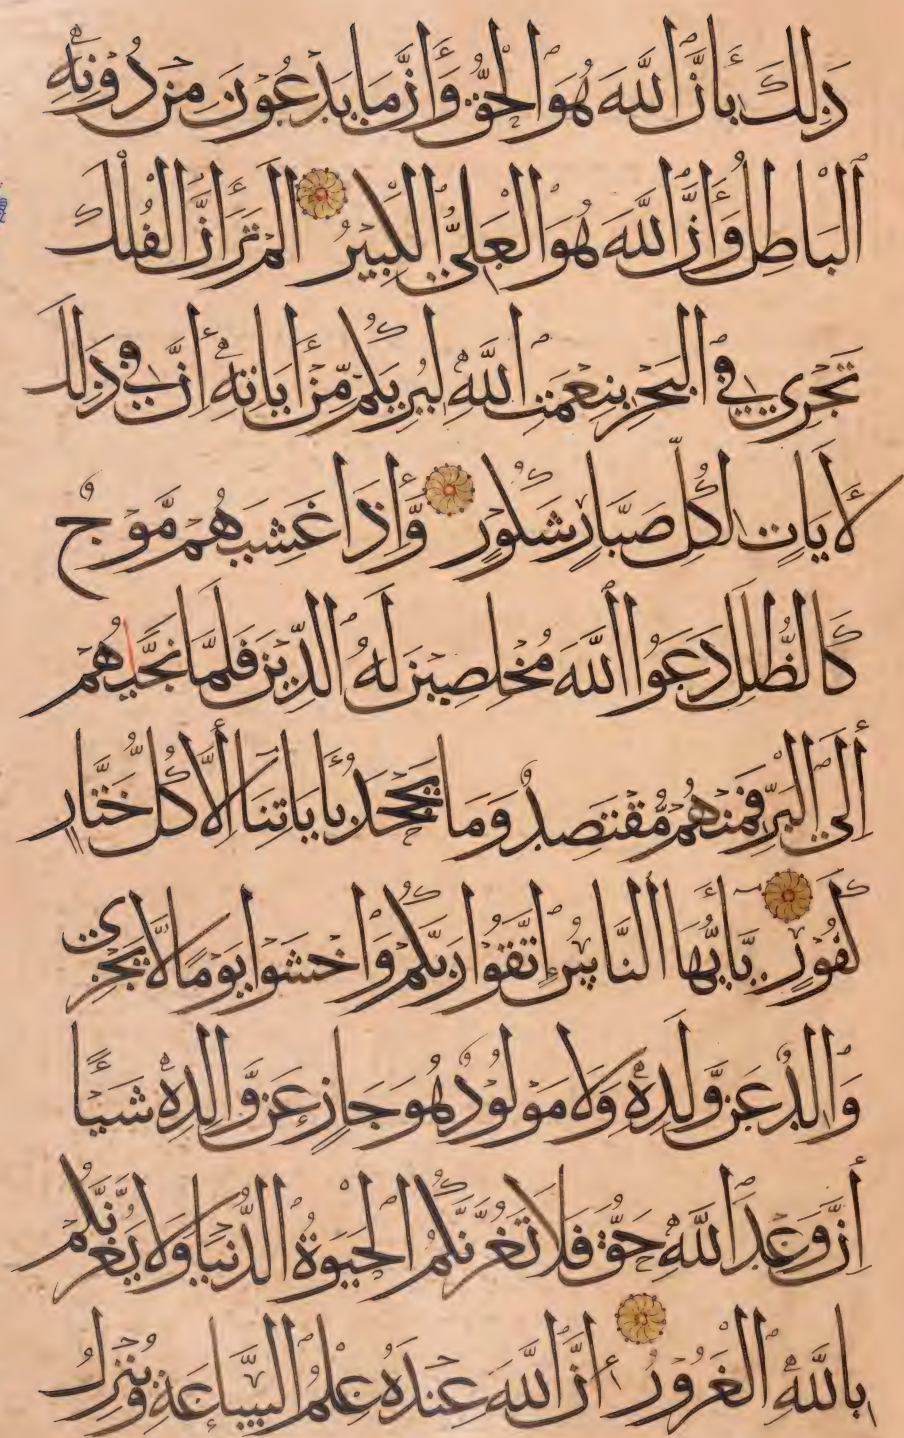 ذَلِكَ بِأَنَّ اللَّهَ هُوَ الْحَقُّ وَأَنَّ مَا يَدْعُونَ مِنْ دُونِهِ
الْبَاطِلُ وَأَنَّ اللَّهَ هُوَ الْعَلِيُّ الْكَبِيرُ أَلَمْ تَرَ أَنَّ الْفُلْكَ
تَجْرِي فِي الْبَحْرِ بِنِعْمَتِ اللَّهِ لِيُرِيَكُمْ مِّنْ أَيَاتِهِ إِنَّ فِي ذَلِكَ
لَأَيَاتٍ لِكُلِّ صَبَّارٍ شَكُورٍ وَّإِذَا غَشِيَهُمْ مَّوْجٌ
كَالظُّلَلِ دَعَوُا اللَّهَ مُخْلِصِينَ لَهُ الدِّينَ فَلَمَّا نَجَّيهُمْ
إِلَى الْبَرِّ فَمِنْهُمْ مُّقْتَصِدٌ وَمَا يَجْحَدُ بِأَيَاتِنَا إِلَّا كُلُّ خَتَّارٍ
كَفُورٍ يَأَيُّهَا النَّاسُ اتَّقُوا رَبَّكُمْ وَاخْشَوْا يَوْمًا لَّا يَجْزِي
وَالِدٌ عَنْ وَّلَدِهِ وَلَا مَوْلُودٌ هُوَ جَازٍ عَنْ وَّالِدِهِ شَيْئًا
إِنَّ وَعْدَ اللَّهِ حَقٌّ فَلَا تَغُرَّنَّكُمُ الْحَيَوةُ الدُّنْيَا وَلَا يَغُرَّنَّكُمْ
بِاللَّهِ الْغَرُورُ إِنَّ اللَّهَ عِنْدَهُ عِلْمُ السَّاعَةِ وَيُنَزِّلُ